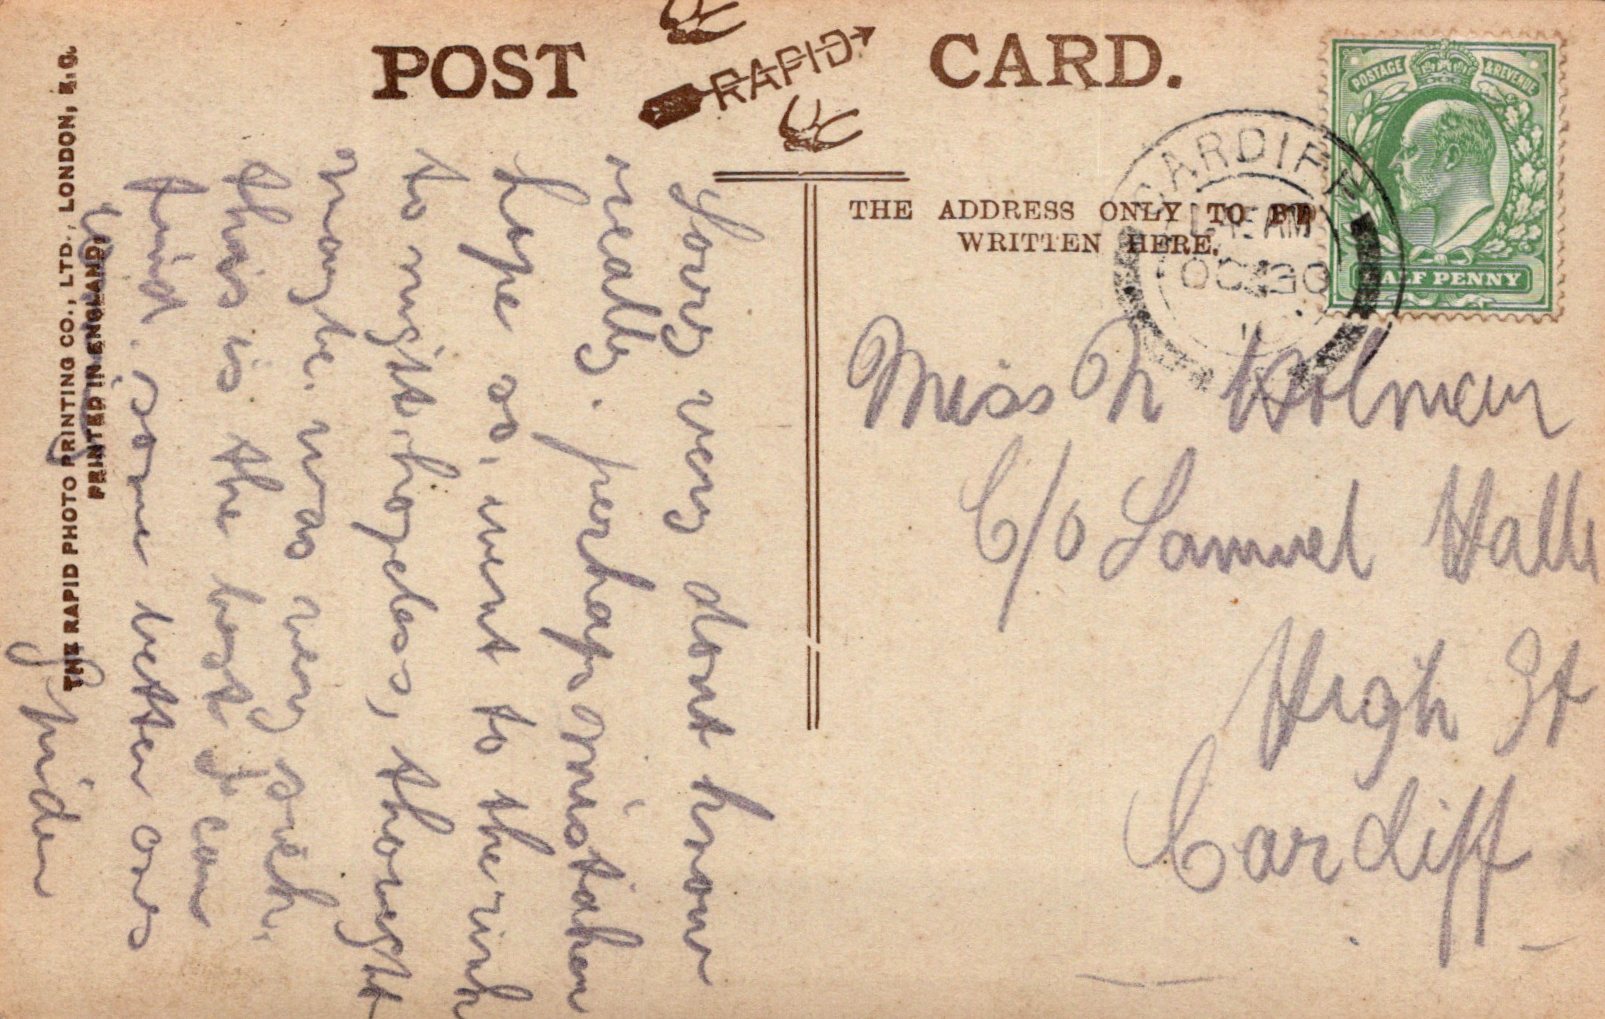 POST RAPID CARD.
THE ADDRESS ONLY TO BE
WRITTEN HERE.
POSTAGE & REVENUE
HALF PENNY
CARDIFF
AM
OC 30
11
Miss N Holman
C/o Samuel Halls
High St
Cardiff
Sorry very dont know
really. perhaps mistaken
hope so, went to the rink
to night hopeless, thought
maybe. was very sick.
this is the best I can
find. some better ones
Spider
THE RAPID PHOTO PRINTING CO., LTD., LONDON, E.C.
PRINTED IN ENGLAND.